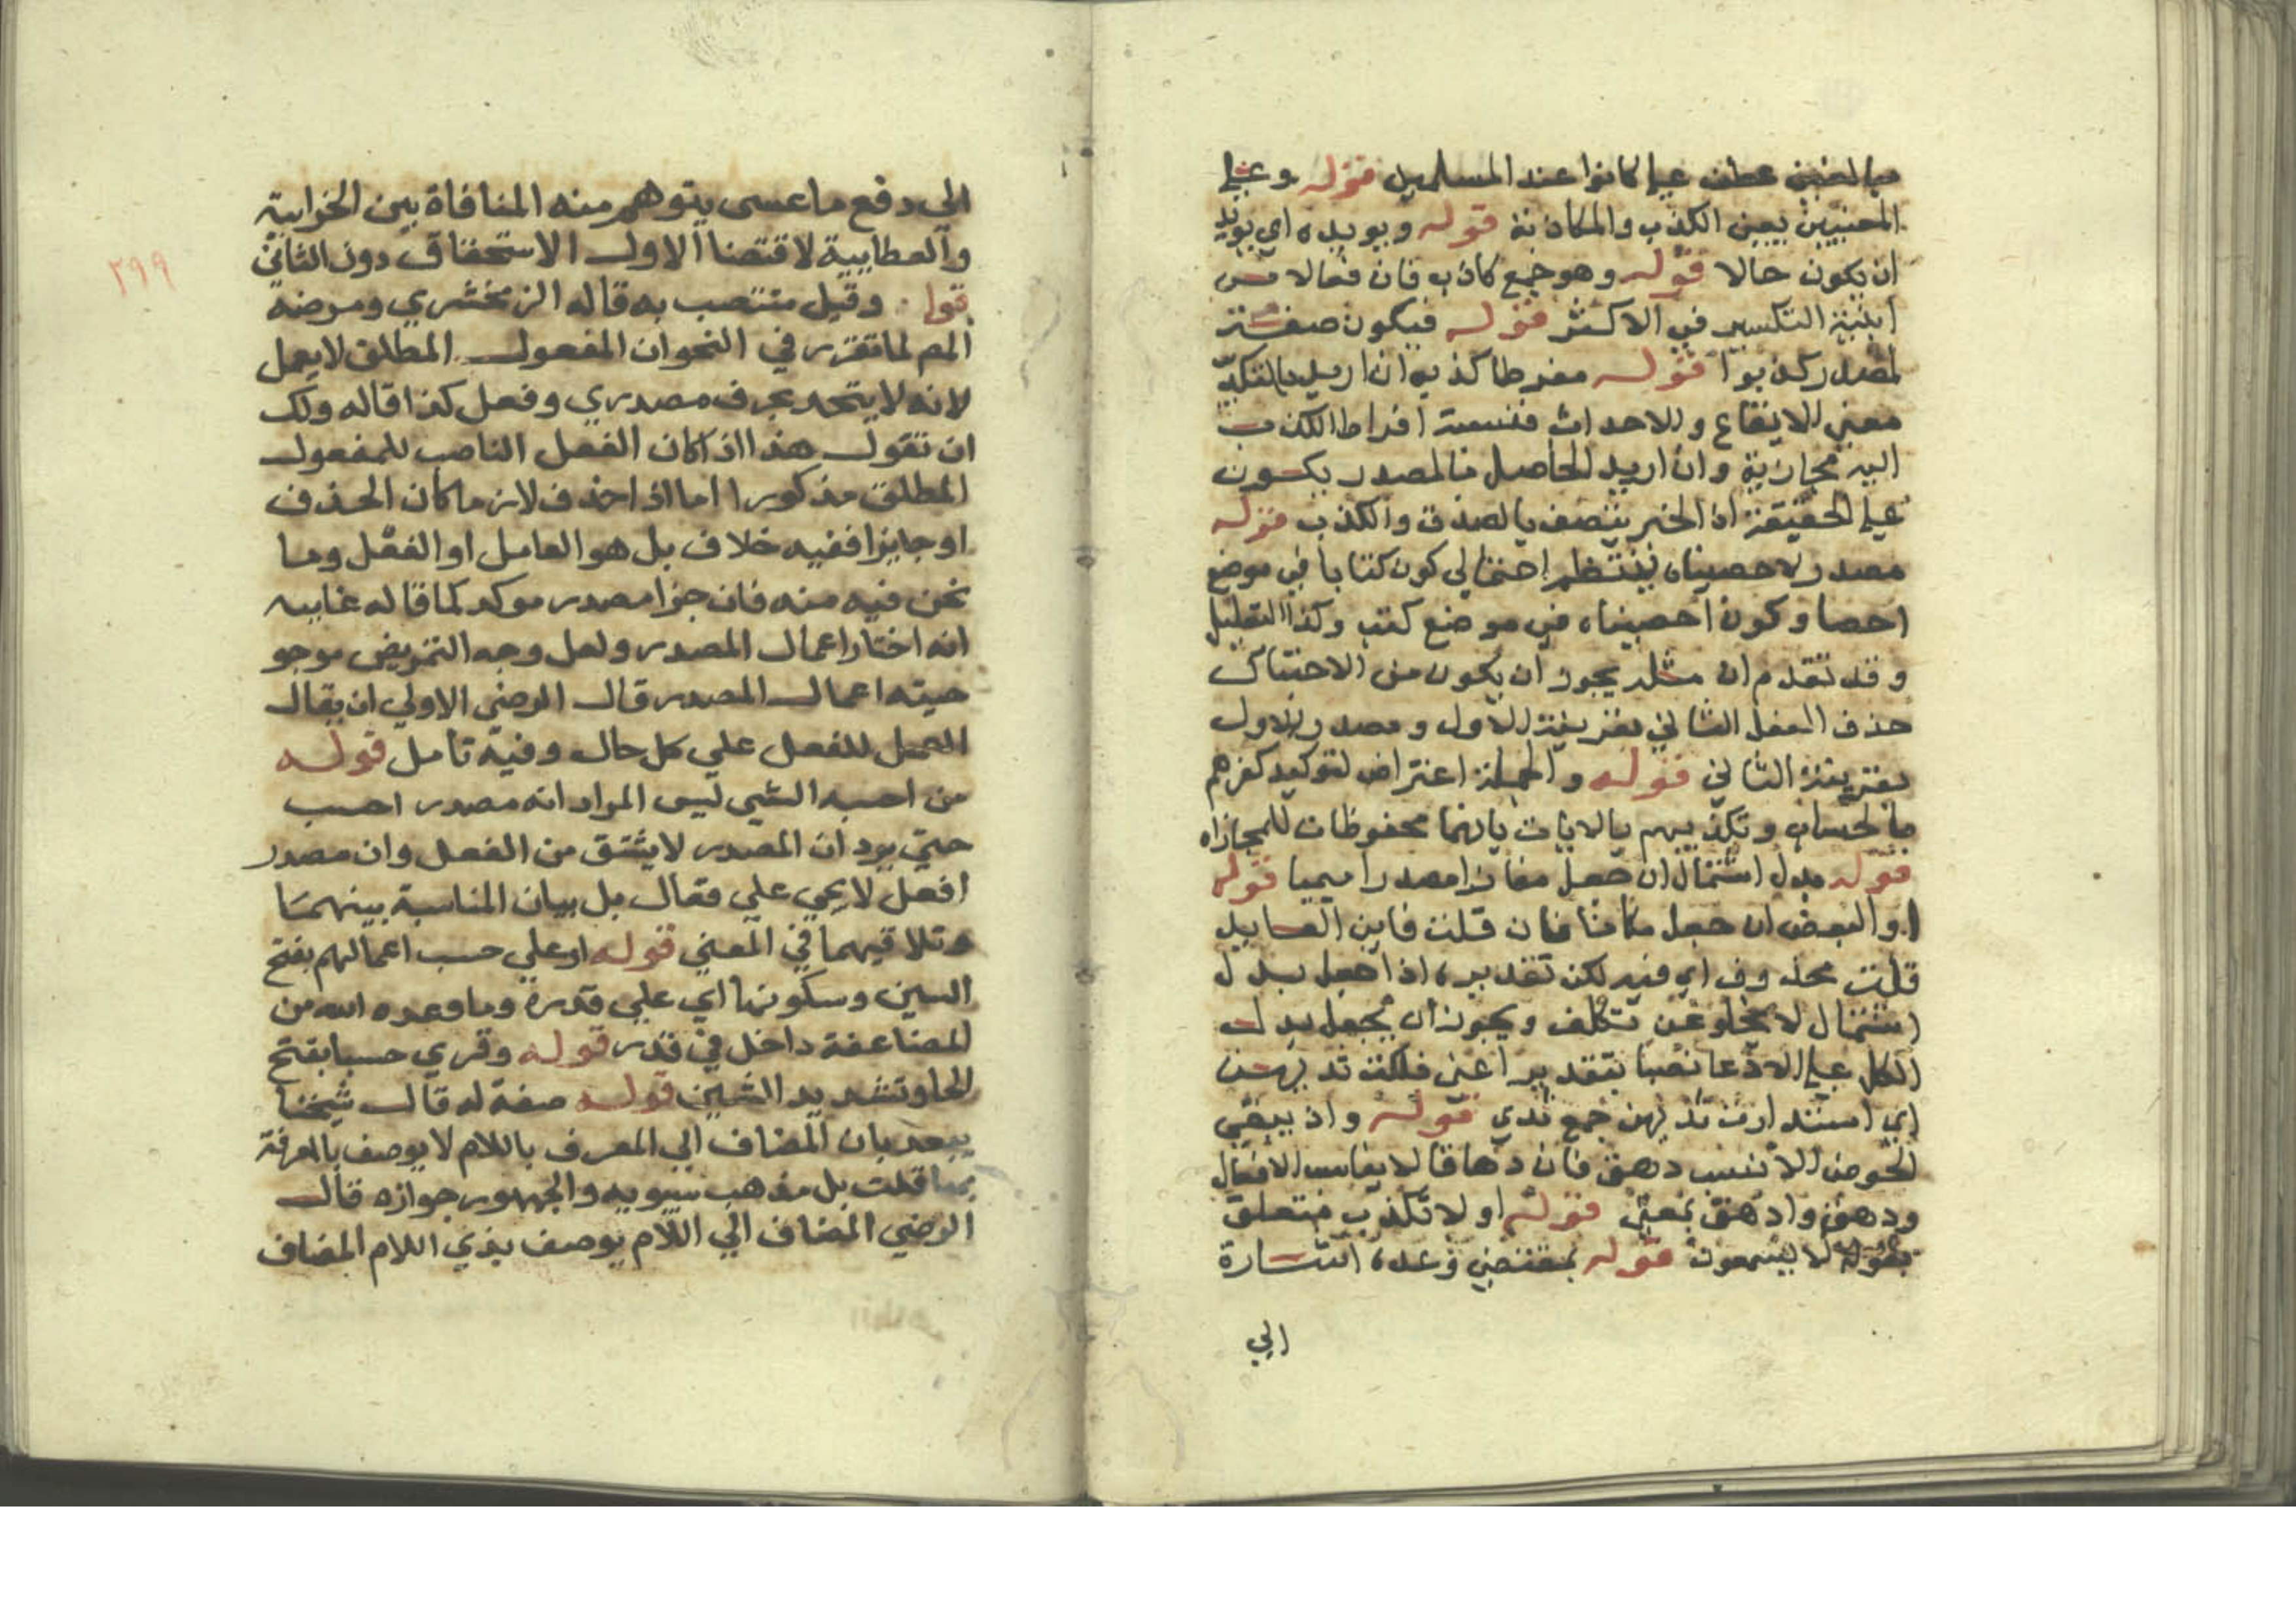 بالمعني عطف علي كانوا عند المسلمين قوله وعلي
المعنيين يعني الكذب والمكاذبة قوله ويويده اي يويد
ان يكون حالا قوله وهو جمع كاذب فان فعالا من
ابنية التكسير في الاكثر قوله فيكون صفة
لمصدر كذبوا قوله مفرطا كذبه ان اريد بالتكذيب
معني الايقاع والاحداث فنسبة افراط الكذب
اليه مجازية وان اريد الحاصل بالمصدر يكون
علي الحقيقة اذ الخبر يتصف بالصدق والكذب قوله
مصدر لاحصيناه فينتظم احتمالي كون كتابا في موضع
احصا وكون احصيناه في موضع كتب وكذا التعليل
وقد تقدم ان مثله يجوز ان يكون من الاحتباك
حذف الفعل الثاني بقرينة الاول ومصدر الاول
بقرينة الثاني قوله والجملة اعتراض لتوكيد كفرهم
بالحساب وتكذيبهم بالايات بانهما محفوظات للمجازاه
قوله بدل اشتمال ان جعل مفازا مصدرا ميميا قوله
او البعض ان جعل مكانا فان قلت فاين العايد
قلت محذوف اي فيه لكن تقديره اذا جعل بدل
اشتمال لا يخلو عن تكلف ويجوز ان يجعل بدل
الكل علي الادعا نصبا بتقدير اعني فلكت ثديهن
اي استدارت ثديهن جمع ثدي قوله وادهق
الحوض الانسب دهق فان دهاقا لا يناسب الافعال
ودهق وادهق بمعني قوله او لا تكذب متعلق
بقوله لا يسمعون قوله بمقتضي وعده اشارة
الي
٢٩٩
الي دفع ما عسي يتوهم منه المنافاة بين الجزاية
والعطايية لاقتضا الاول الاستحقاق دون الثاني
قوله وقيل منتصب به قاله الزمخشري ومرضه
المص لما تقرر في النحو ان المفعول المطلق لا يعمل
لانه لا يتحد بحرف مصدري وفعل كذا قاله ولك
ان تقول هذا اذا كان الفعل الناصب للمفعول
المطلق مذكورا اما اذا حذف لازما كان الحذف
او جايزا ففيه خلاف بل هو العامل او الفعل وما
نحن فيه منه فان جزا مصدر موكد كما قاله غايته
انه اختار اعمال المصدر ولعل وجه التمريض موجو
حيته اعمال المصدر قال الرضي الاولي ان يقال
العمل للفعل علي كل حال وفيه تامل قوله
من احسبه الشي ليس المراد انه مصدر احسب
حتي يرد ان المصدر لا يشتق من الفعل وان مصدر
افعل لا يجي علي فعال بل بيان المناسبة بينهما
وتلاقيهما في المعني قوله او علي حسب اعمالهم بفتح
السين وسكونها اي علي قدره وما وعده الله من
المضاعفة داخل في قدر قوله وقري حسبا بفتح
الحا وتشديد الشين قوله صفة له قال شيخنا
يبعد بان المضاف الي المعرف باللام لا يوصف بالمعرفة
بها قلت بل مذهب سيبويه والجمهور جوازه قال
الرضي المضاف الي اللام يوصف بذي اللام المضاف